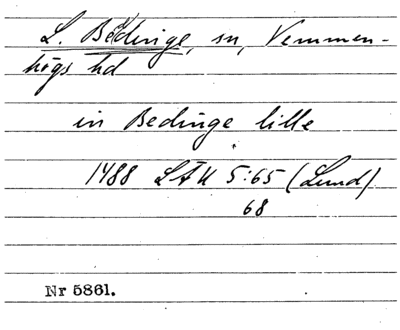 L. Beddinge, sn, Vemmen-
högs hd
in Bedinge lille
1488 LÄU 5:65 (Lund)
68
Nr 5861.